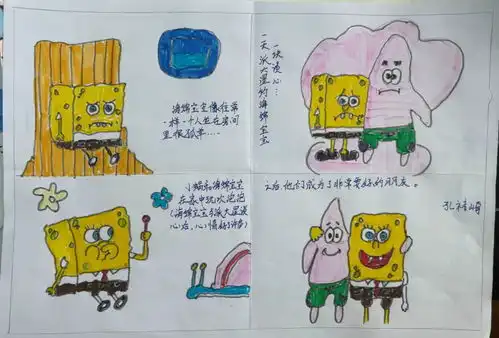 海绵宝宝像往常
一样,一个人坐在房间
里很孤单……
一天派大星约海绵宝宝
一块谈心…
小蜗和海绵宝宝
在家中玩吹泡泡
(海绵宝宝与派大星谈
心后,心情好了许多)
之后,他们成为了非常要好的朋友。